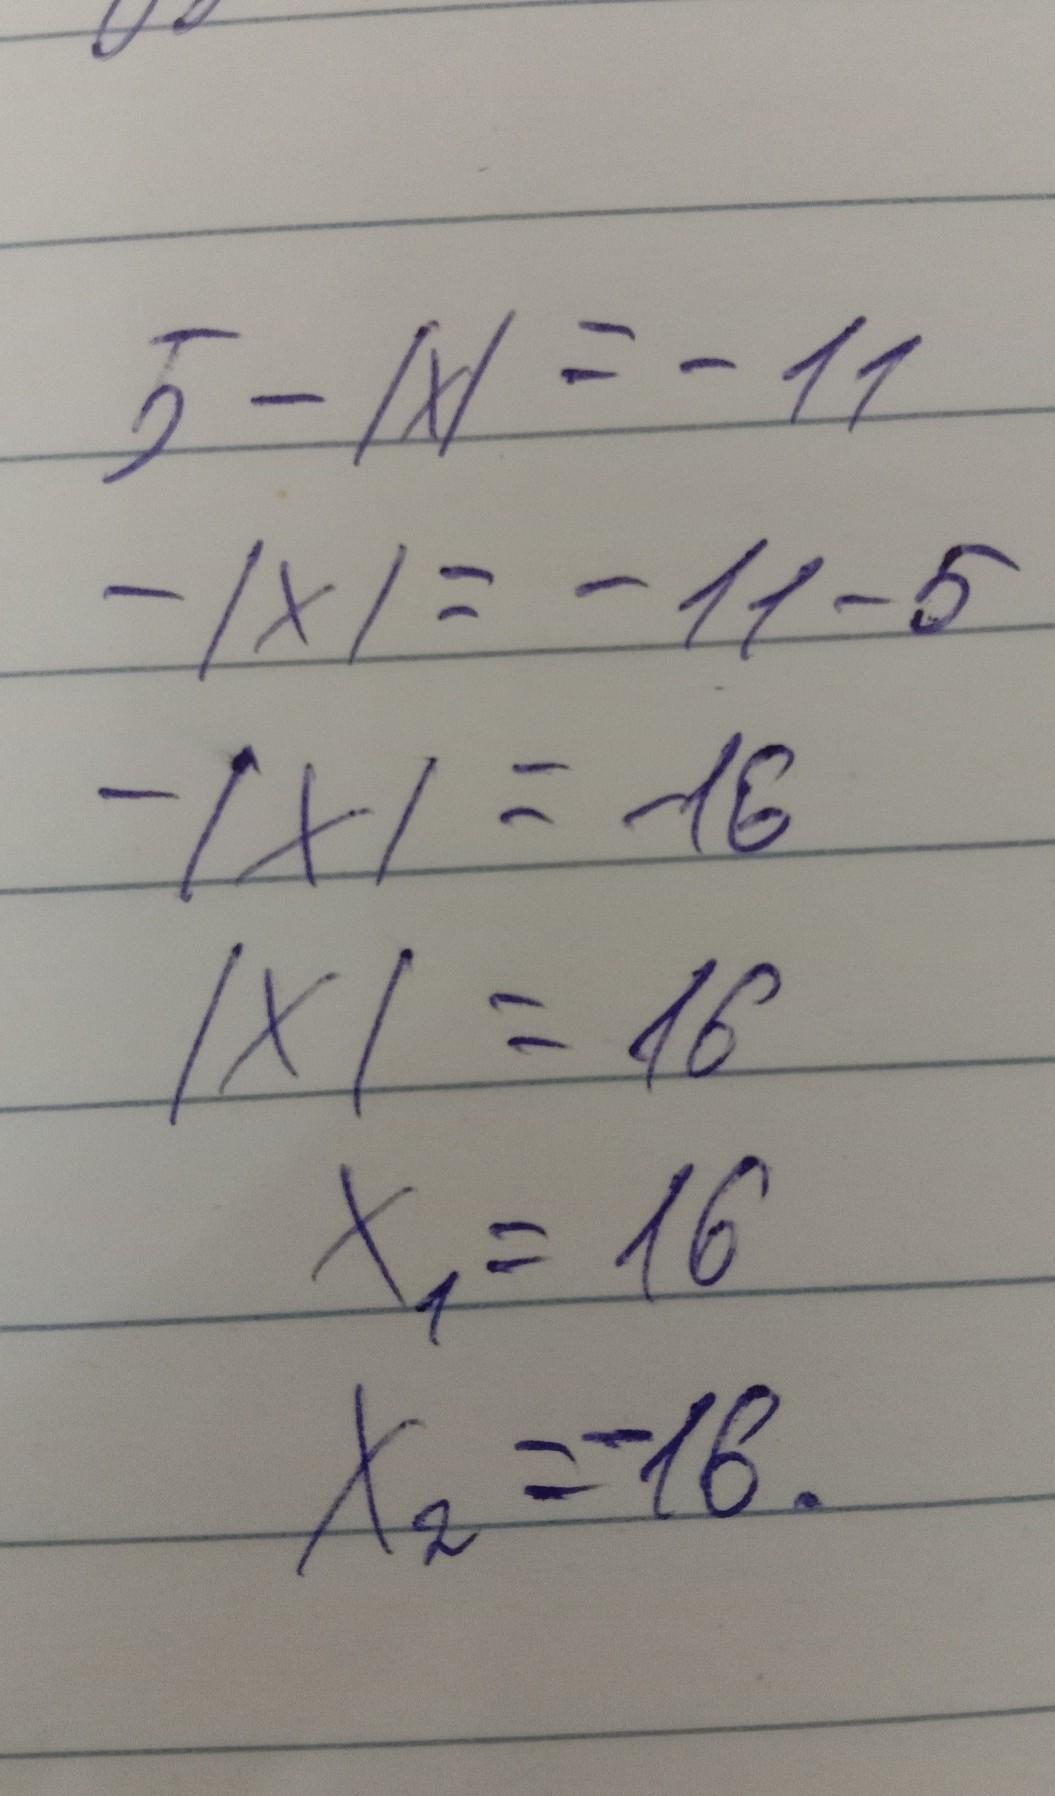 5 - |x| = - 11
- |x| = - 11 - 5
- |x| = -16
|x| = 16
x₁ = 16
x₂ = -16.